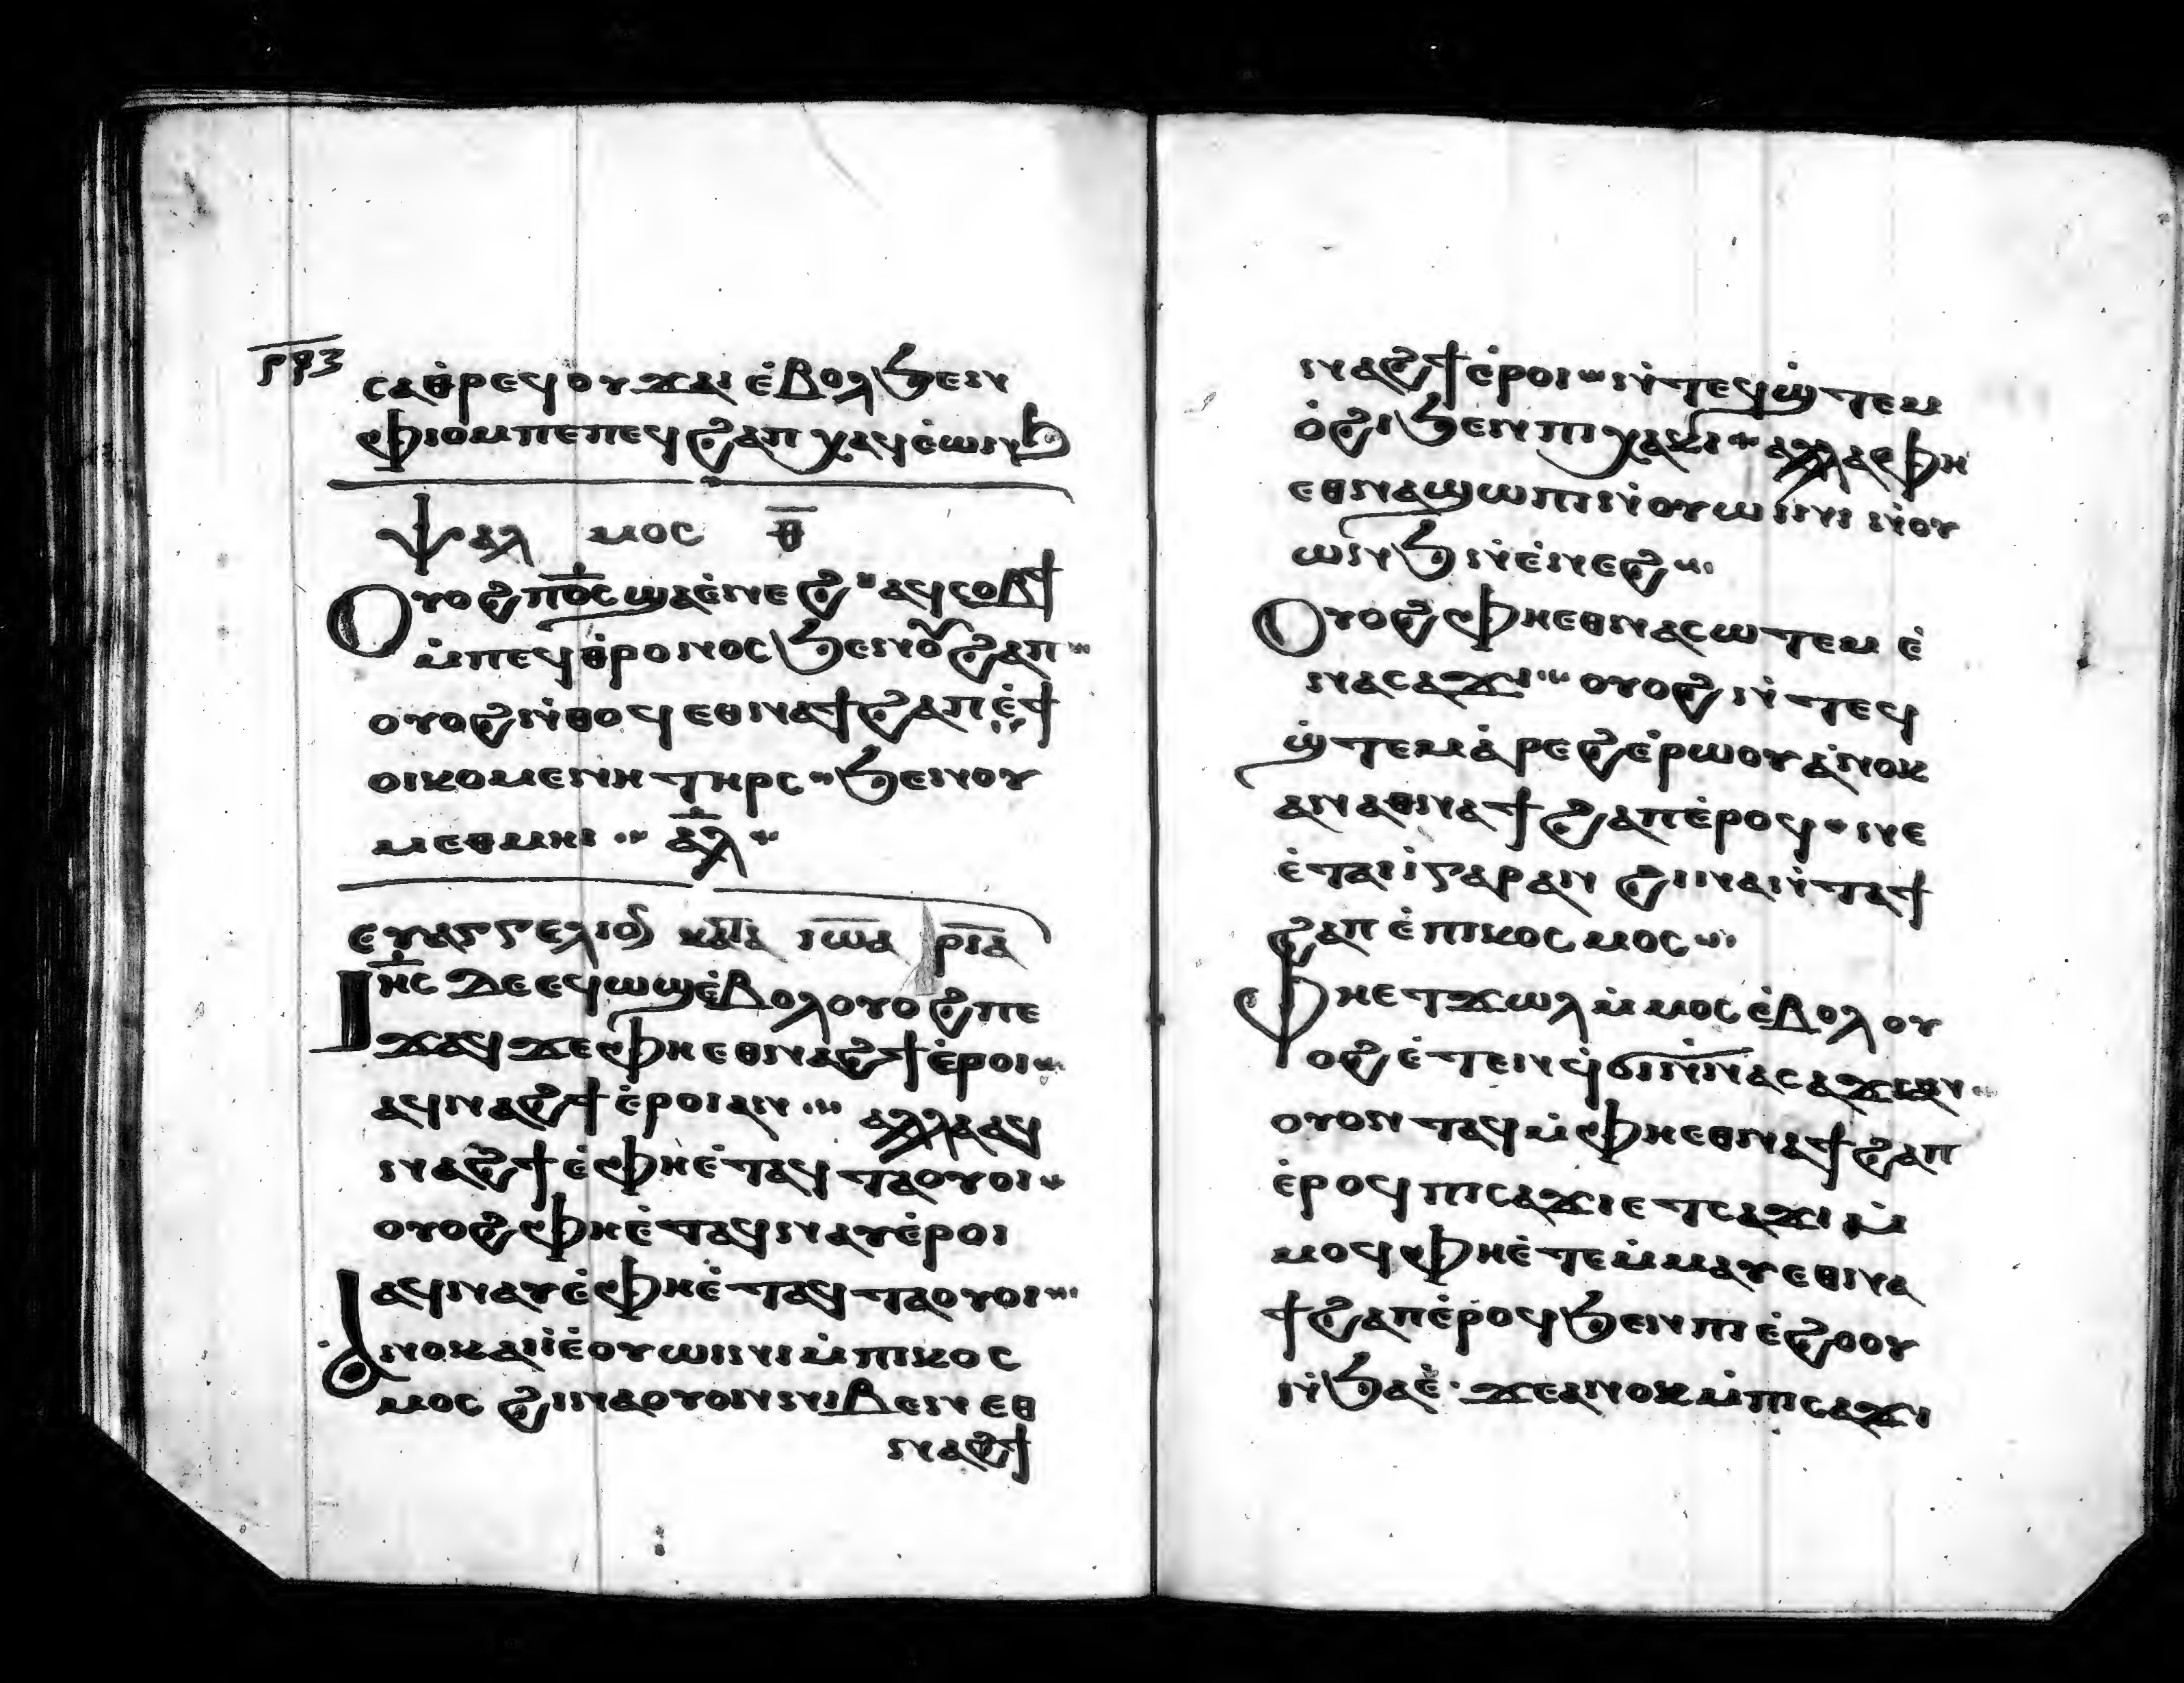 ⲣϥⲍ
ⲥⲁⲑⲣⲉϥⲟⲩϫⲁⲓ ⲉ̇ⲃⲟⲗϧⲉⲛ
ⲫⲓⲟⲙ ⲡⲉ ⲡⲉϥϩⲁⲡ ⲭⲁϥ ⲉ̇ⲱⲛϧ
ⲯⲁⲗ ⲙⲟⲥ ⲑ̅
Ⲟⲩⲟϩ ⲡⲟ̅ⲥ ϣⲁⲉ̇ⲛⲉϩ ⲁϥⲥⲟⲃϯ
ⲙ̇ⲡⲉϥⲑ̇ⲣⲟⲛⲟⲥ ϧⲉⲛⲟⲩϩⲁⲡ
ⲟⲩⲟϩ ⲛ̇ⲑⲟϥ ⲉⲑⲛⲁϯϩⲁⲡ ⲉ̇ϯ
ⲟⲓⲕⲟⲙⲉⲛⲏ ⲧⲏⲣⲥ ϧⲉⲛⲟⲩ
ⲙⲉⲑⲙⲏⲓ ⲁ̅ⲗ
ⲉⲩⲁⲅⲅⲉⲗⲓⲟⲛ ⲕⲁⲧⲁ ⲓⲱⲁ ⲣⲓⲁ
Ⲓⲏⲥ ⲇⲉ ⲉϥⲱϣ ⲉ̇ⲃⲟⲗ ⲟⲩⲟϩ ⲡⲉ
ϫⲁϥ ϫⲉ ⲫⲏⲉⲑⲛⲁϩϯ ⲉ̇ⲣⲟⲓ
ⲁϥⲛⲁϩϯ ⲉ̇ⲣⲟⲓ ⲁⲛ ⲁⲗⲗⲁ ⲁϥ
ⲛⲁϩϯ ⲉ̇ⲫⲏⲉ̇ⲧⲁϥⲧⲁⲟⲩⲟⲓ
ⲟⲩⲟϩ ⲫⲏⲉ̇ⲧⲁϥⲛⲁⲩ ⲉ̇ⲣⲟⲓ
ⲁϥⲛⲁⲩ ⲉ̇ⲫⲏⲉ̇ⲧⲁϥⲧⲁⲟⲩⲟⲓ
Ⲁⲛⲟⲕ ⲁⲓⲓ̇ ⲉ̇ⲟⲩⲱⲓⲛⲓ ⲙ̇ⲡⲓⲕⲟⲥ
ⲙⲟⲥ ϩⲓⲛⲁ ⲟⲩⲟⲛ ⲛⲓⲃⲉⲛ ⲉⲑ
ⲛⲁϩϯ
ⲛⲁϩϯ ⲉ̇ⲣⲟⲓ ⲛ̇ⲧⲉϥϣ̇ⲧⲉⲙ
ⲟ̇ϩⲓ ϧⲉⲛ ⲡⲓⲭⲁⲕⲓ ⲁⲗⲗⲁ ⲫⲏ
ⲉⲑⲛⲁϣⲱⲡⲓ ⲛ̇ⲟⲩⲱⲓⲛⲓ ⲛ̇ⲟⲩ
ⲱⲛϧ ⲛ̇ⲉ̇ⲛⲉϩ
Ⲟⲩⲟϩ ⲫⲏⲉⲑⲛⲁⲥⲱⲧⲉⲙ ⲉ̇
ⲛⲁⲥⲁϫⲓ ⲟⲩⲟϩ ⲛ̇ⲧⲉϥ
ϣ̇ⲧⲉⲙⲁ̇ⲣⲉϩ ⲉ̇ⲣⲱⲟⲩ ⲁ̇ⲛⲟⲕ
ⲁⲛ ⲁⲑⲛⲁϯϩⲁⲡ ⲉ̇ⲣⲟϥ ⲛⲉ
ⲉ̇ⲧⲁⲓⲓ̇ ⲅⲁⲣ ⲁⲛ ϩⲓⲛⲁ ⲛ̇ⲧⲁϯ
ϩⲁⲡ ⲉ̇ⲡⲓⲕⲟⲥⲙⲟⲥ
Ⲫⲏⲉⲧϫⲱⲗ ⲙ̇ⲙⲟⲥ ⲉ̇ⲃⲟⲗ ⲟⲩ
ⲟϩ ⲉ̇ⲧⲉⲛϥ̇ϭⲓ ⲛ̇ⲛⲁⲥⲁϫⲓ ⲁⲛ
ⲟⲩⲟⲛⲧⲁϥ ⲙ̇ⲫⲏⲉⲑⲛⲁϯϩⲁⲡ
ⲉ̇ⲣⲟϥ ⲡⲓⲥⲁϫⲓ ⲉⲧⲥⲁϫⲓ ⲙ̇
ⲙⲟϥ ⲫⲏⲉ̇ⲧⲉⲙ̇ⲙⲁⲩ ⲉⲑⲛⲁ
ϯϩⲁⲡ ⲉ̇ⲣⲟϥ ϧⲉⲛ ⲡⲓⲉ̇ϩⲟⲟⲩ
ⲛ̇ϧⲁⲉ̇ ϫⲉ ⲁⲛⲟⲕ ⲙ̇ⲡⲓⲥⲁϫⲓ